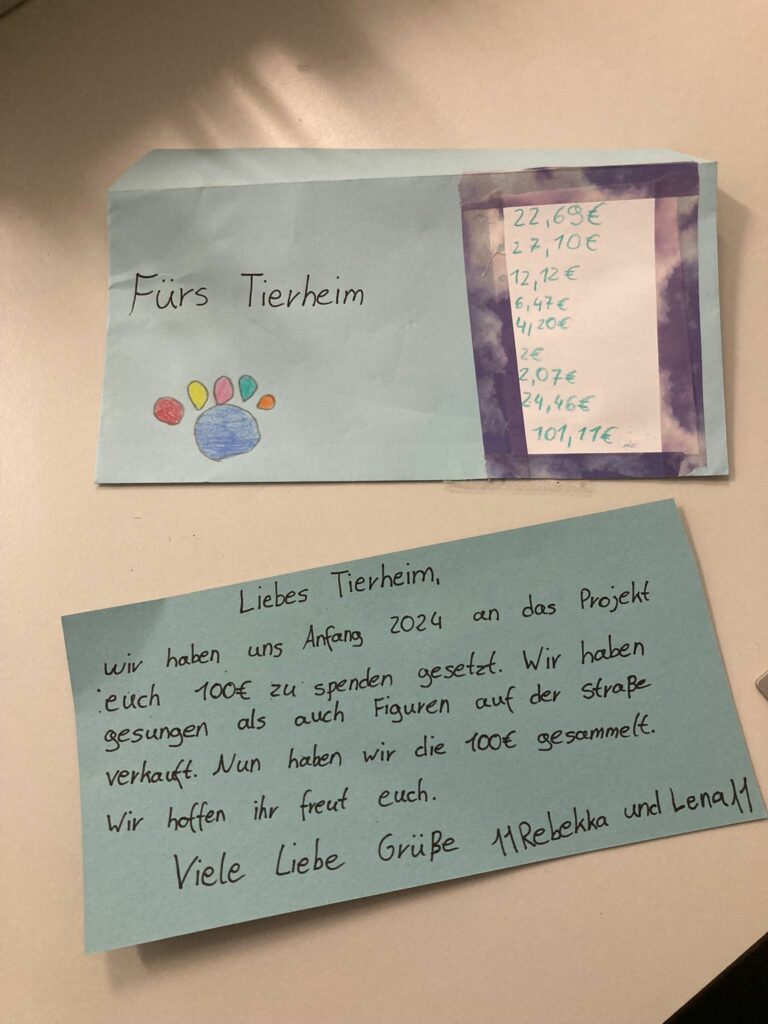 Fürs Tierheim
22,69€
27,10€
12,12€
6,47€
4,20€
2€
2,07€
24,46€
101,11€
Liebes Tierheim,
wir haben uns Anfang 2024 an das Projekt
euch 100€ zu spenden gesetzt. Wir haben
gesungen als auch Figuren auf der Straße
verkauft. Nun haben wir die 100€ gesammelt.
Wir hoffen ihr freut euch.
Viele Liebe Grüße 11Rebekka und Lena11